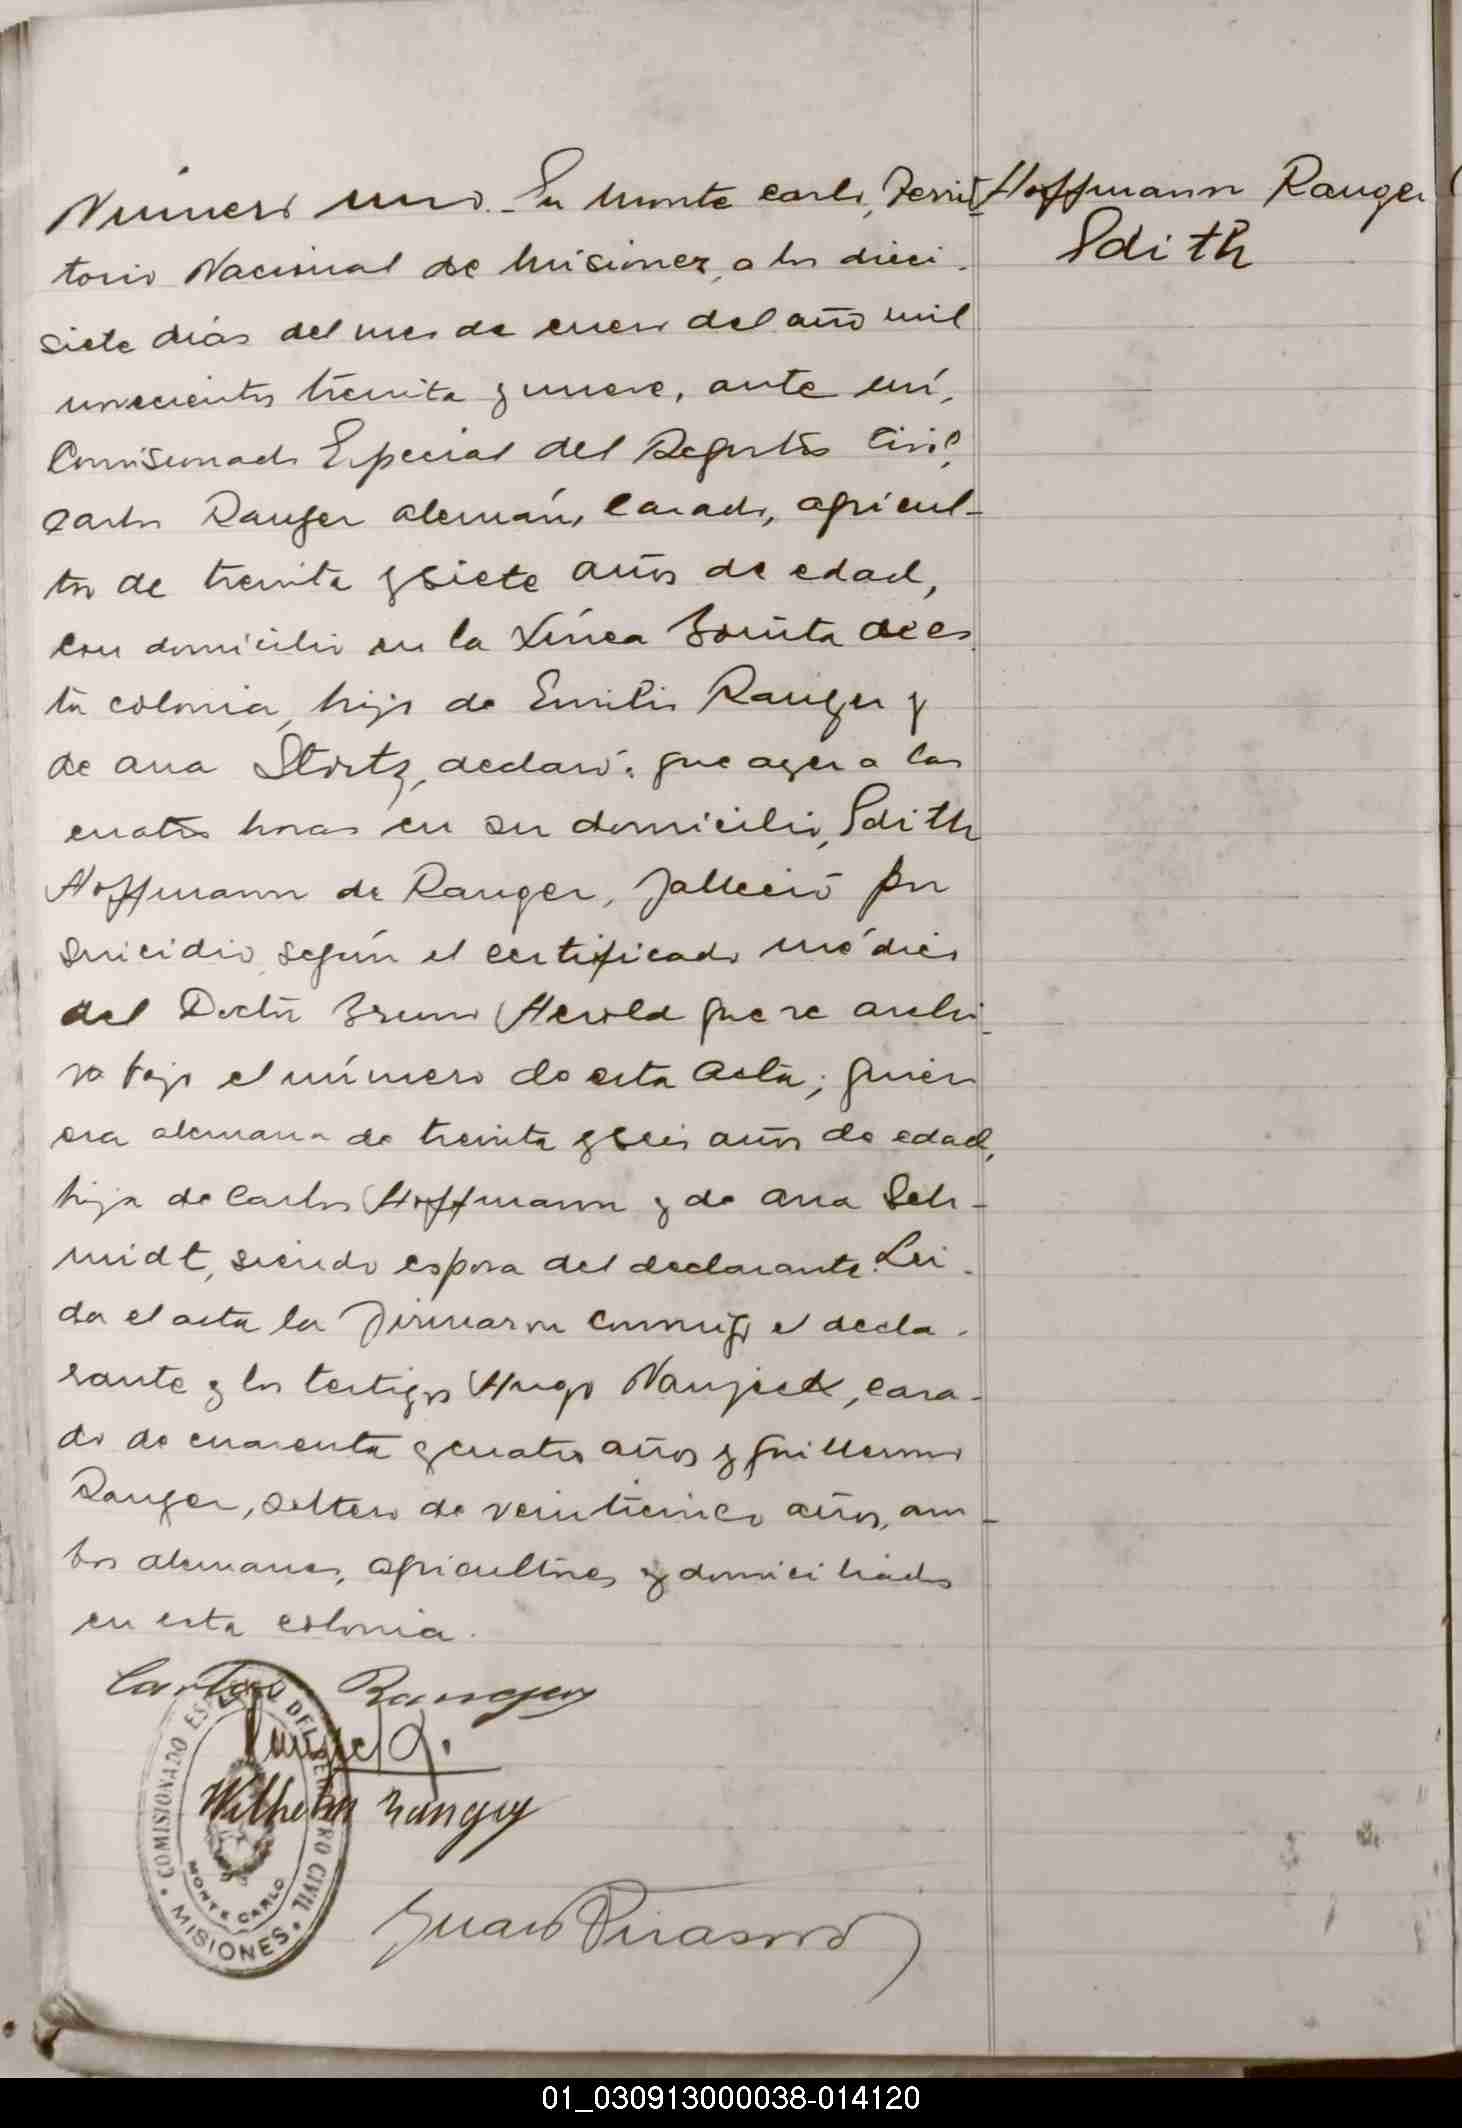 Número uno.- En Monte Carlo, Terri-
torio Nacional de Misiones, a los dieci-
siete días del mes de enero del año mil
novecientos treinta y nueve, ante mí,
Comisionado Especial del Registro Civil,
Carlos Ranger alemán, casado, agricul-
tor de treinta y siete años de edad,
con domicilio en la Línea Bonita de es-
ta colonia, hijo de Emilio Ranger y
de Ana Stortz, declaró: que ayer a las
cuatro horas en su domicilio, Edith
Hoffmann de Ranger, falleció por
suicidio, según el certificado médico
del Doctor Bruno Herold que se archi-
va bajo el número de esta acta; quien
era alemana de treinta y seis años de edad,
hija de Carlos Hoffmann y de Ana Sch-
midt, siendo esposa del declarante. Leí-
da el acta la firmaron conmigo el decla-
rante y los testigos Hugo Naujeck, casa-
do de cuarenta y cuatro años y Guillermo
Ranger, soltero de veinticinco años, am-
bos alemanes, agricultores y domiciliados
en esta colonia.
Hoffmann Ranger
Edith
Carlos Ranger
Wilhelm Ranger
COMISIONADO ESPECIAL DEL REGISTRO CIVIL
MONTE CARLO
MISIONES
01_030913000038-014120